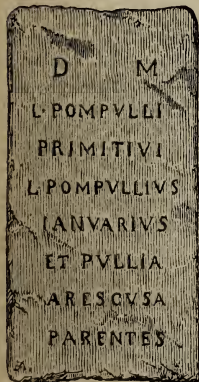 D M
L·POMPVLLI
PRIMITIVI
L·POMPVLLIVS
IANVARIVS
ET PVLLIA
ARESCVSA
PARENTES